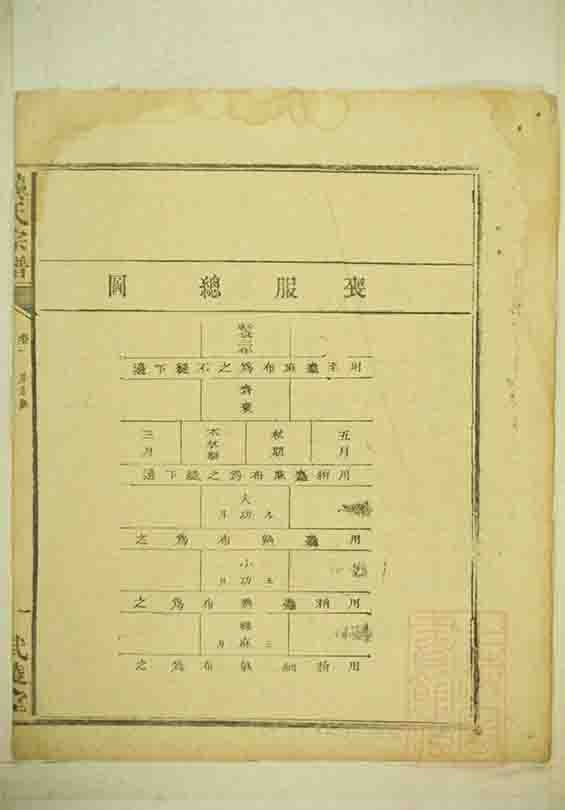 喪服總圖
斬衰三年
用至麄麻布為之不縫下邊
齊衰
五月
杖期
不杖期
三月
用稍麄麻布為之縫下邊
大功九月
用麄熟布為之
小功五月
用稍麄熟布為之
緦麻三月
用稍細熟布為之
氏宗譜
卷一
一